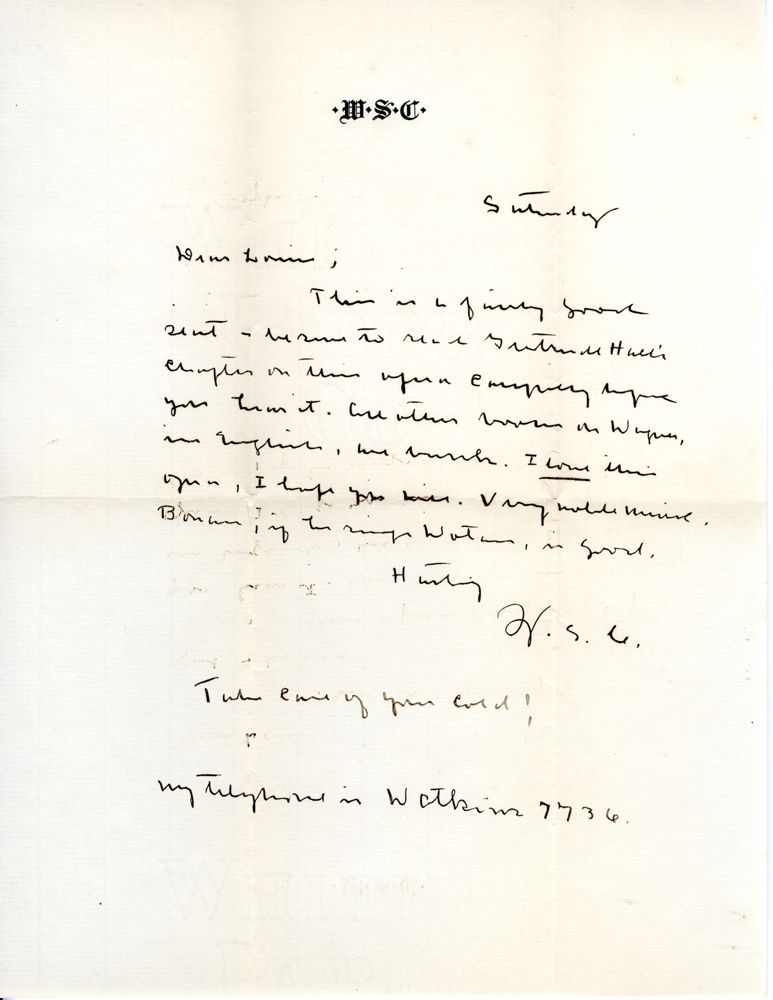 ·W·S·C·
Saturday
Dear Louise;
This is a fairly good
seat — be sure to read Gertrude Hall's
chapter on this opera carefully before
you hear it. All other books on Wagner,
in English, are rubbish. I love this
opera, I hope you will. Very noble music.
Bohnen, if he sings Wotan, is good.
Hastily
W. S. C.
Take care of your cold!
My telephone is Watkins 7736.